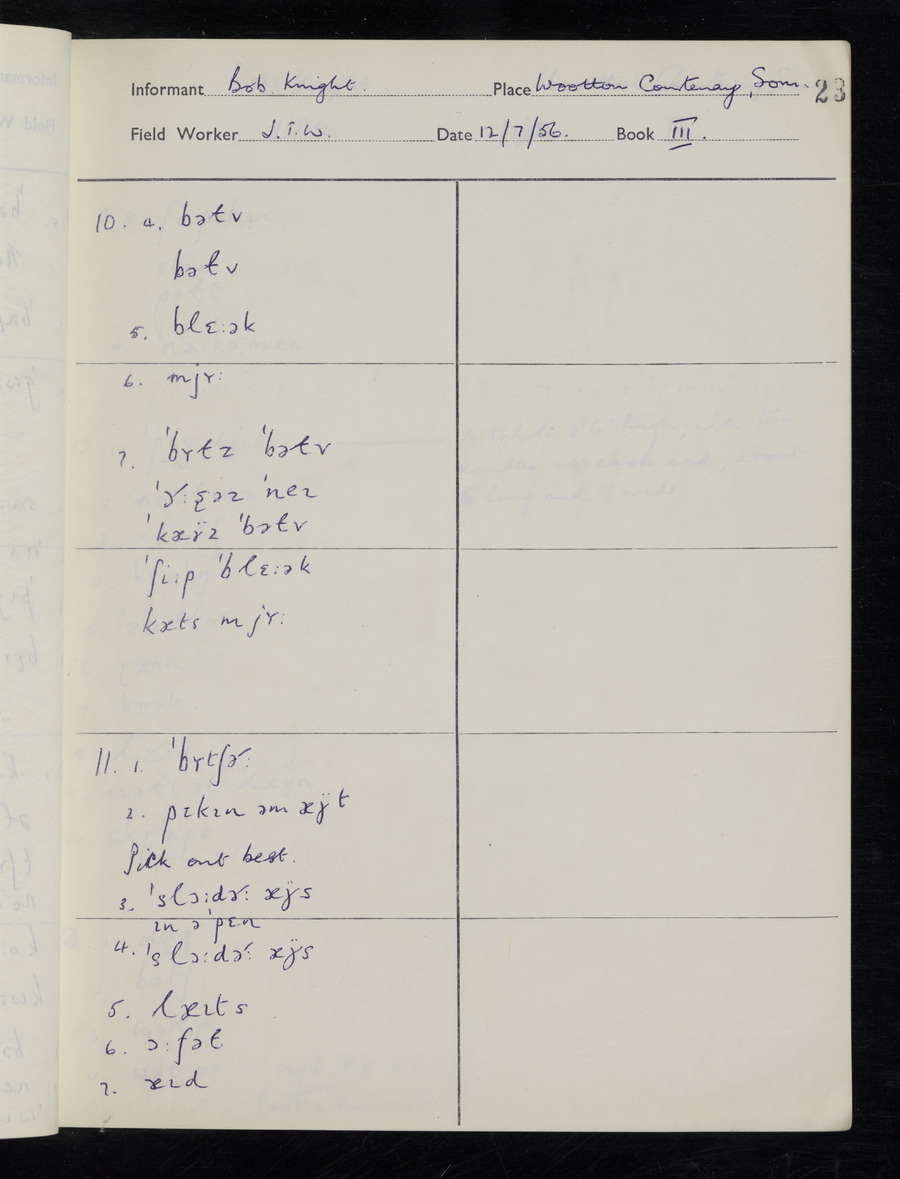 Informant Bob Knight. Place Wootton Courtenay, Som. 23
Field Worker J.T.W. Date 12/7/56. Book III.
10. 4. bətv
bətv
5. blɛ:ək
6. mjʏ:
7. ˈbʏtz ˈbətv
ˈneɪ
ˈkæʏ̈z ˈbətv
ˈʃi:p ˈblɛ:ək
kæts mjʏ:
11. 1. ˈbʏtʃɚ:
2. pɪkɪn əm æÿt
Pick out best.
3. ˈslɔ:dɚ: æÿs
ɪn ə ˈpɛn
4. ˈslɔ:dɚ: æÿs
5. læɪts
6. ɔ:fəl
7. æɪd